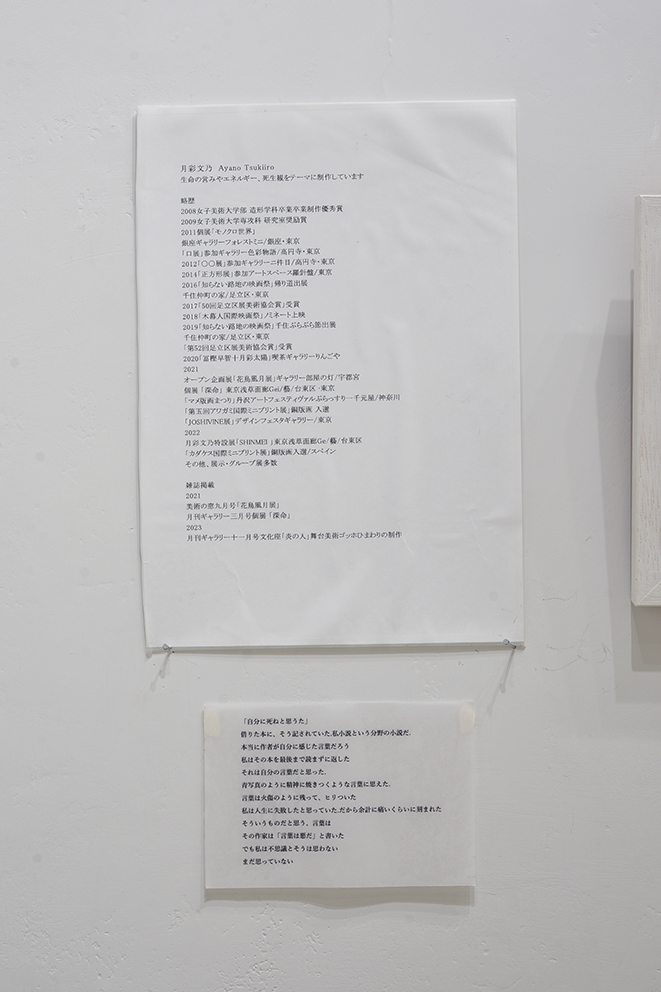 月彩文乃 Ayano Tsukiiro
生命の営みやエネルギー、死生線をテーマに制作しています
略歴
2008女子美術大学部 造形学科卒業卒業制作優秀賞
2009女子美術大学専攻科 研究室奨励賞
2011個展「モノクロ世界」
銀座ギャラリーフォレストミニ/銀座・東京
「ロ展」参加ギャラリー色彩物語/高円寺・東京
2012「〇〇展」参加ギャラリー二件目/高円寺・東京
2014「正方形展」参加アートスペース羅針盤/東京
2016「知らない路地の映画祭」帰り道出展
千住仲町の家/足立区・東京
2017「50回足立区展美術協会賞」受賞
2018「木幕人国際映画祭」ノミネート上映
2019「知らない路地の映画祭」千住ぶらぶら節出展
千住仲町の家/足立区・東京
「第52回足立区展美術協会賞」受賞
2020「冨樫早智十月彩太陽」喫茶ギャラリーりんごや
2021
オープン企画展「花鳥風月展」ギャラリー部屋の灯/宇都宮
個展 「深命」 東京浅草画廊Gei/藝/台東区・東京
「マメ版画まつり」丹沢アートフェスティヴァルぷらっすり一千元屋/神奈川
「第五回アワガミ国際ミニプリント展」銅版画 入選
「JOSHIVINE展」デザインフェスタギャラリー/東京
2022
月彩文乃特設展「SHINMEI 」東京浅草画廊Ge/藝/台東区
「カダケス国際ミニプリント展」銅版画入選/スペイン
その他、展示・グループ展多数
雑誌掲載
2021
美術の窓九月号「花鳥風月展」
月刊ギャラリー三月号個展 「深命」
2023
月刊ギャラリー十一月号文化座「炎の人」舞台美術ゴッホひまわりの制作
「自分に死ねと思うた」
借りた本に、そう記されていた.私小説という分野の小説だ.
本当に作者が自分に感じた言葉だろう
私はその本を最後まで読まずに返した
それは自分の言葉だと思った.
青写真のように精神に焼きつくような言葉に思えた.
言葉は火傷のように残って、ヒリついた
私は人生に失敗したと思っていた.だから余計に痛いくらいに刻まれた
そういうものだと思う、言葉は
その作家は「言葉は悪だ」と書いた
でも私は不思議とそうは思わない
まだ思っていない